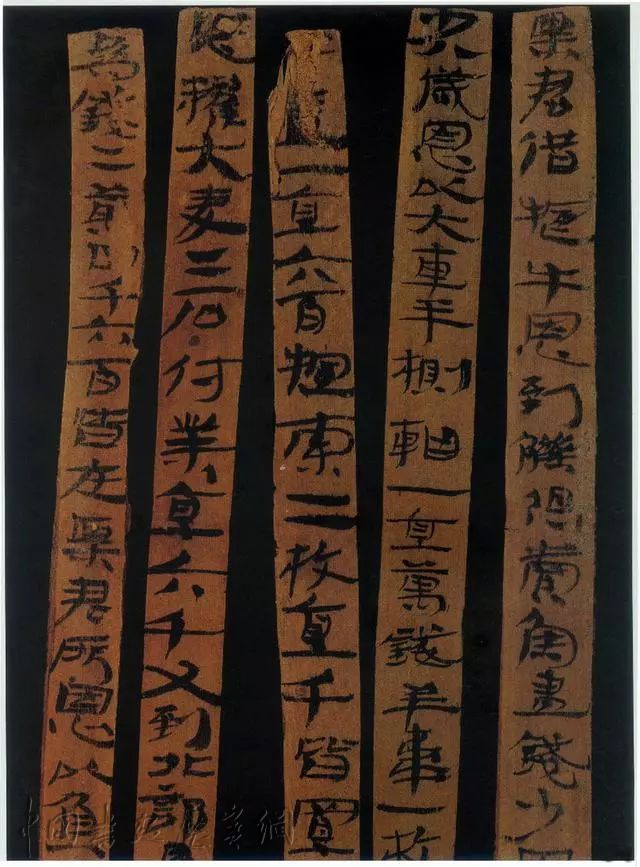 粟君借牛恩到觻得賣魚盡錢少
恩以大車半軸一直萬錢羊韋一枚
一直六百索二枚直千皆置
恩糴大麥二石付業直六千又到北部
為錢二萬四千六百皆在粟君所恩以負